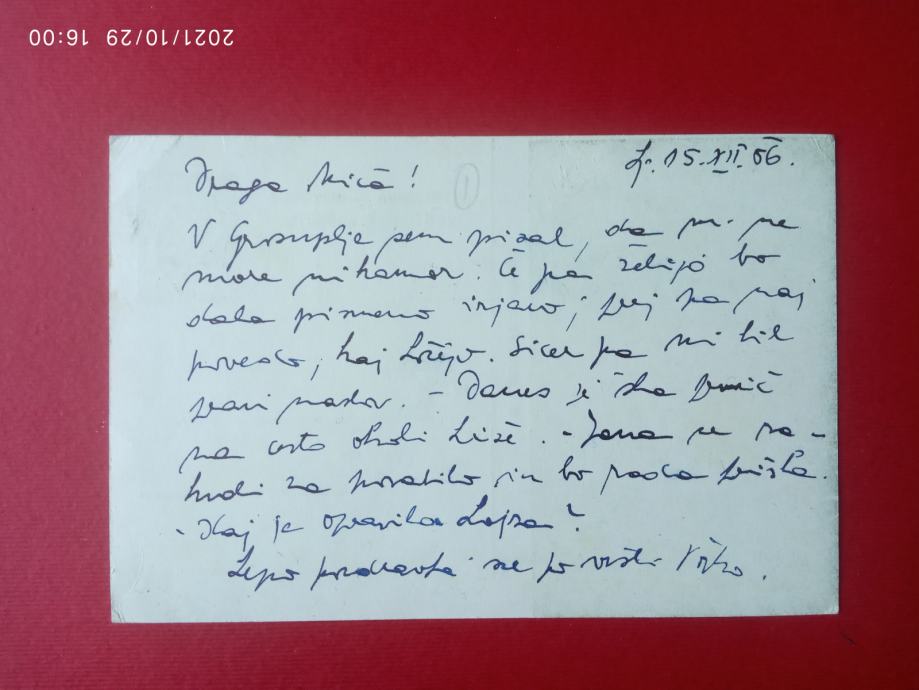 2021/10/29 16:00
Lj. 15. XII. 56.
Draga Mica!
V Grosuplje sem pisal, da se ne
more nikamor. Če pa želijo bo
dala pismeno izjavo; prej pa naj
povedo, kaj želijo. Sicer pa ni bil
pravi naslov. - Danes je šla prvič
na cesto okoli hiše. - Jana se za-
hvali za povabilo in bo rada prišla.
- Kaj je opravila Lojza?
Lepo pozdravlja vse po vrsti